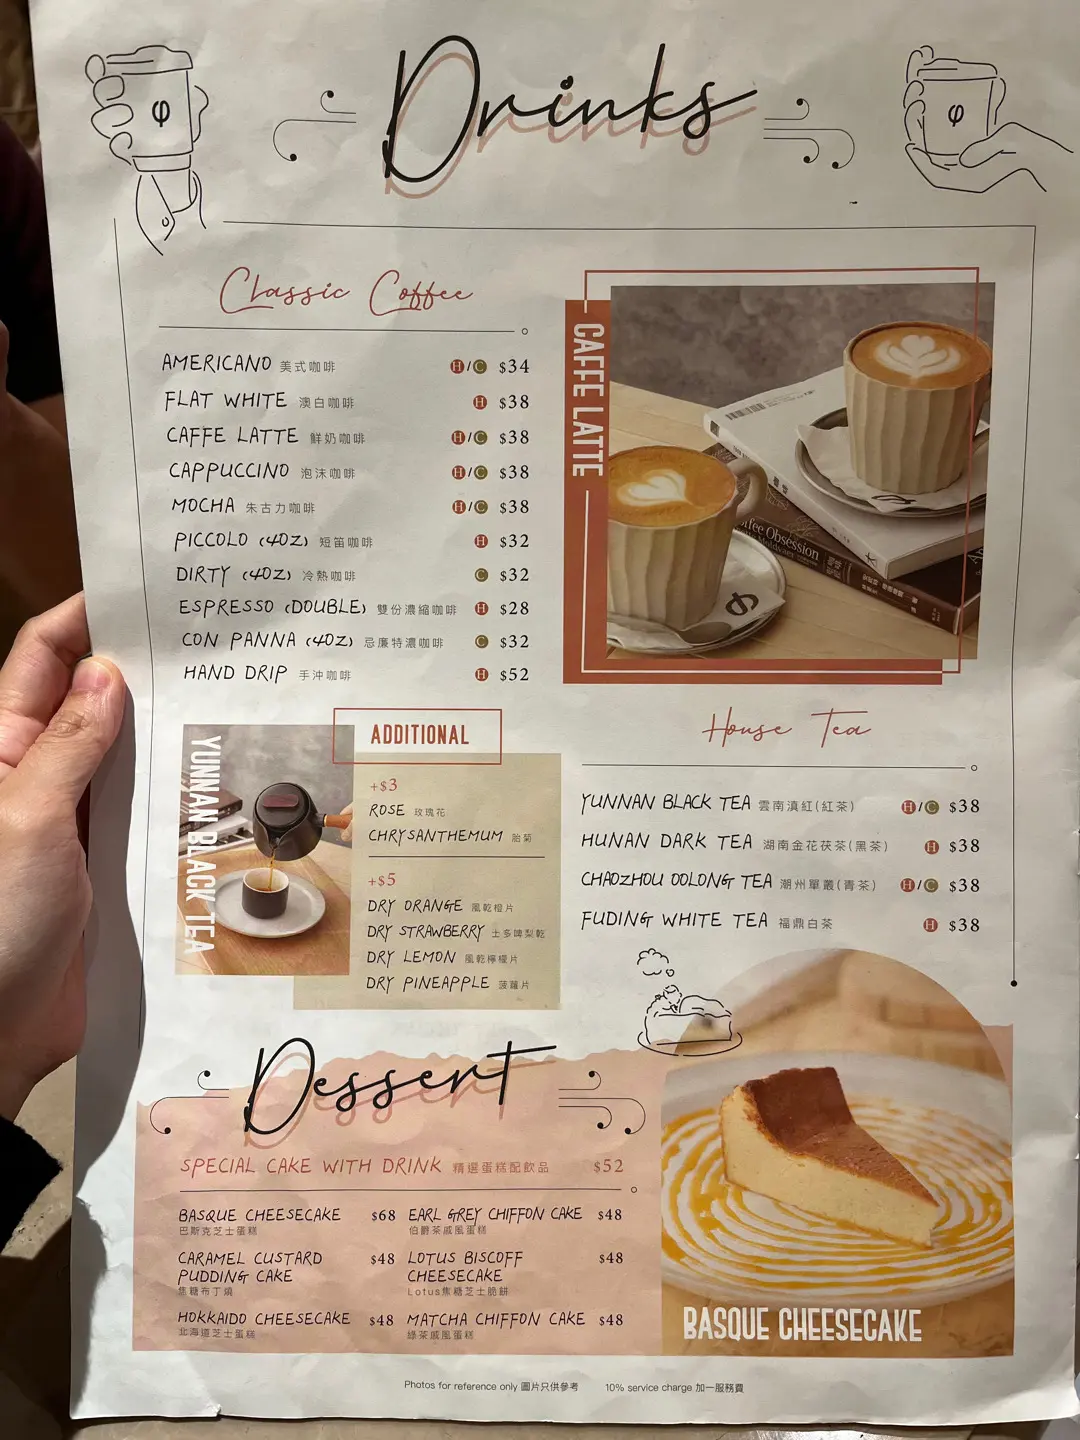 Drinks
Classic Coffee
AMERICANO 美式咖啡 H/C $34
FLAT WHITE 澳白咖啡 H $38
CAFFE LATTE 鮮奶咖啡 H/C $38
CAPPUCCINO 泡沫咖啡 H/C $38
MOCHA 朱古力咖啡 H/C $38
PICCOLO (4OZ) 短笛咖啡 H $32
DIRTY (4OZ) 冷熱咖啡 C $32
ESPRESSO (DOUBLE) 雙份濃縮咖啡 H $28
CON PANNA (4OZ) 忌廉特濃咖啡 C $32
HAND DRIP 手沖咖啡 H $52
CAFFE LATTE
ffee Obsession
YUNNAN BLACK TEA
ADDITIONAL
+$3
ROSE 玫瑰花
CHRYSANTHEMUM 胎菊
+$5
DRY ORANGE 風乾橙片
DRY STRAWBERRY 士多啤梨乾
DRY LEMON 風乾檸檬片
DRY PINEAPPLE 菠蘿片
House Tea
YUNNAN BLACK TEA 雲南滇紅(紅茶) H/C $38
HUNAN DARK TEA 湖南金花茯茶(黑茶) H $38
CHAOZHOU OOLONG TEA 潮州單叢(青茶) H/C $38
FUDING WHITE TEA 福鼎白茶 H $38
Dessert
SPECIAL CAKE WITH DRINK 精選蛋糕配飲品 $52
BASQUE CHEESECAKE $68
巴斯克芝士蛋糕
CARAMEL CUSTARD $48
PUDDING CAKE
焦糖布丁燒
HOKKAIDO CHEESECAKE $48
北海道芝士蛋糕
EARL GREY CHIFFON CAKE $48
伯爵茶戚風蛋糕
LOTUS BISCOFF $48
CHEESECAKE
Lotus焦糖芝士脆餅
MATCHA CHIFFON CAKE $48
綠茶戚風蛋糕
BASQUE CHEESECAKE
Photos for reference only 圖片只供參考 10% service charge 加一服務費